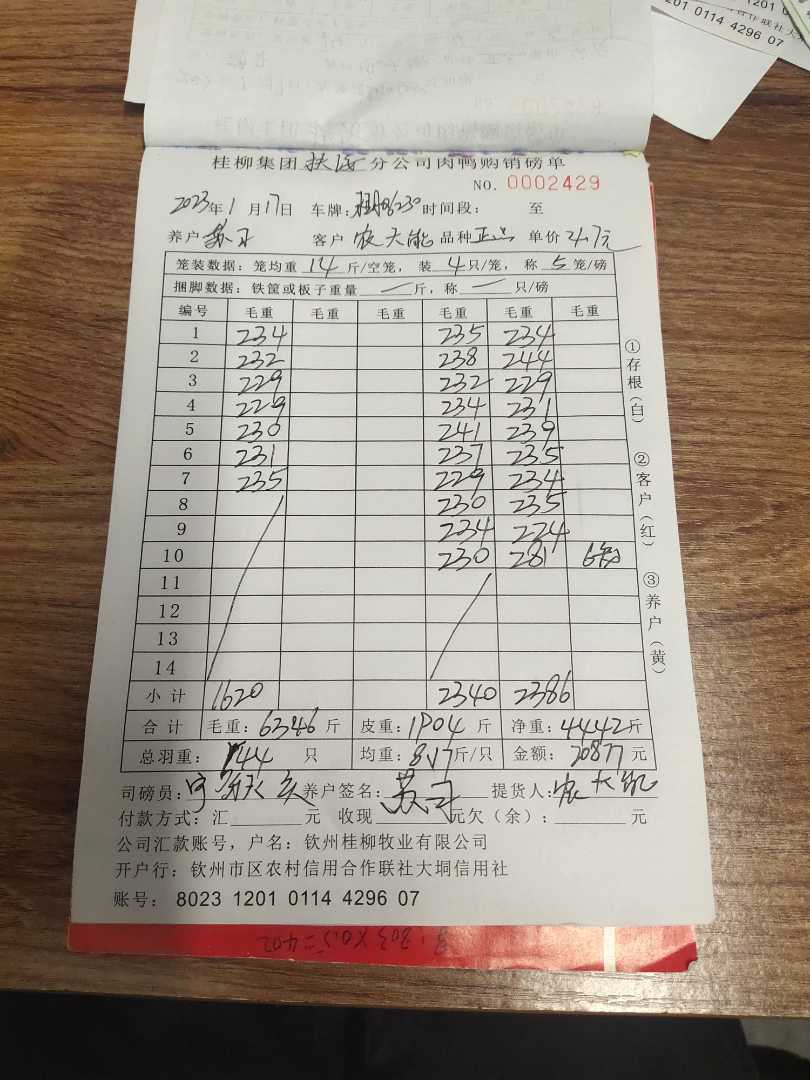 1201 0
201 0114
4296 07
桂柳集团扶绥分公司肉鸭购销磅单
NO. 0002429
2023年1月17日 车牌: 时间段: 至
养户苏 客户农大能 品种正品 单价 4.7元
笼装数据: 笼均重 14 斤/空笼, 装 4 只/笼, 称 5 笼/磅
捆脚数据: 铁筐或板子重量 — 斤, 称 — 只/磅
编号 毛重 毛重 毛重 毛重 毛重 毛重
1 234 235 234
2 232 238 244
3 229 232 229
4 229 234 231
5 230 241 239
6 231 237 235
7 235 229 234
8 230 235
9 234 224
10 230 281 6
11
12
13
14
小计 1620 2340 2386
合计 毛重: 6346 斤 皮重: 1904 斤 净重: 4442 斤
总羽重: 544 只 均重: 8.17 斤/只 金额: 20877 元
司磅员: 养户签名: 苏 提货人: 农大能
付款方式: 汇 元 收现 元欠(余): 元
公司汇款账号, 户名: 钦州桂柳牧业有限公司
开户行: 钦州市区农村信用合作联社大垌信用社
账号: 8023 1201 0114 4296 07
①存根(白)
②客户(红)
③养户(黄)